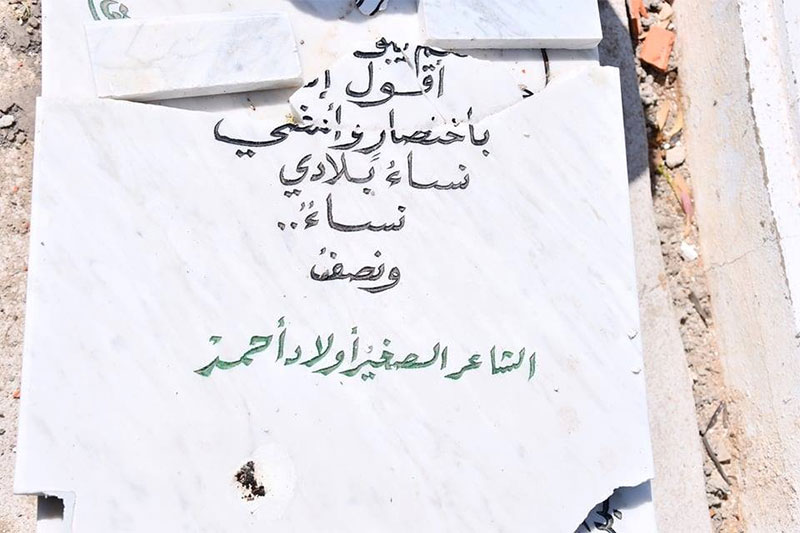 يبق
أقول
بأختصارٍ وأنتهي
نساءُ بلادي
نساءُ..
ونصفُ
الشاعر الصغيّر أولاد أحمد